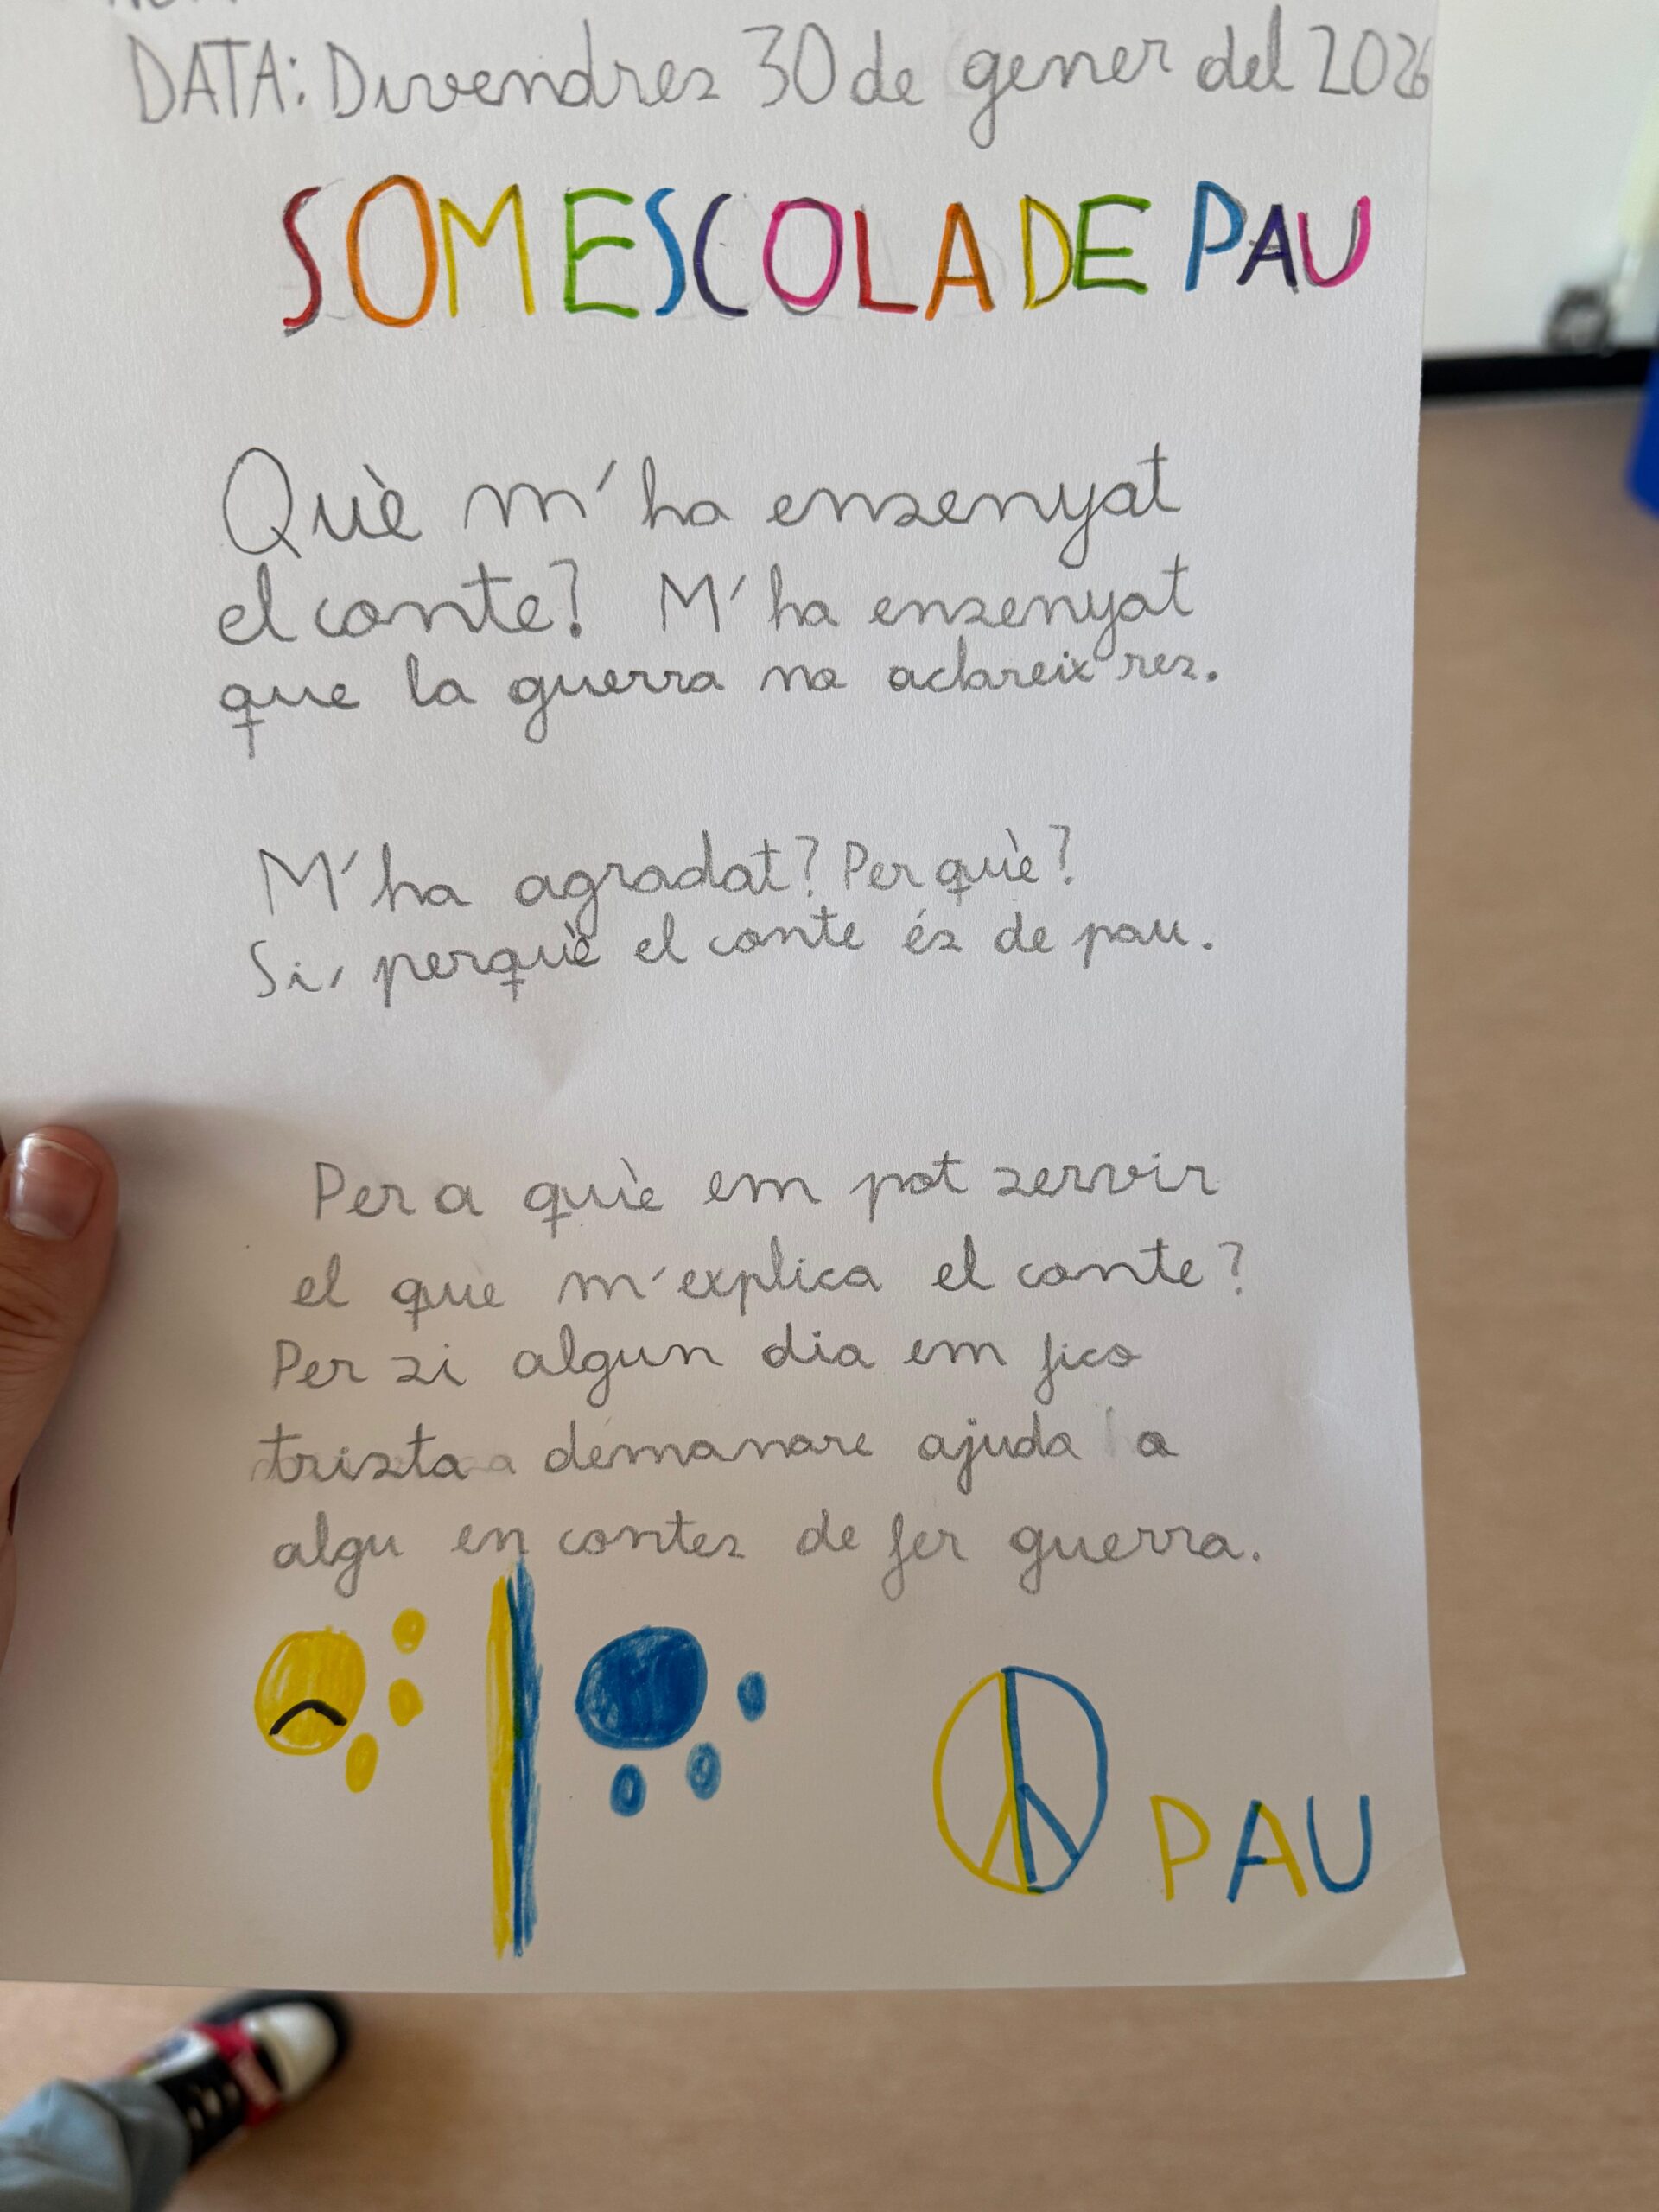 DATA: Divendres 30 de gener del 2026
SOM ESCOLA DE PAU
Què m'ha ensenyat
el conte? M'ha ensenyat
que la guerra no aclareix res.
M'ha agradat? Per què?
Si, perquè el conte és de pau.
Per a què em pot servir
el que m'explica el conte?
Per si algun dia em fico
trista demanare ajuda a
algu en contes de fer guerra.
PAU